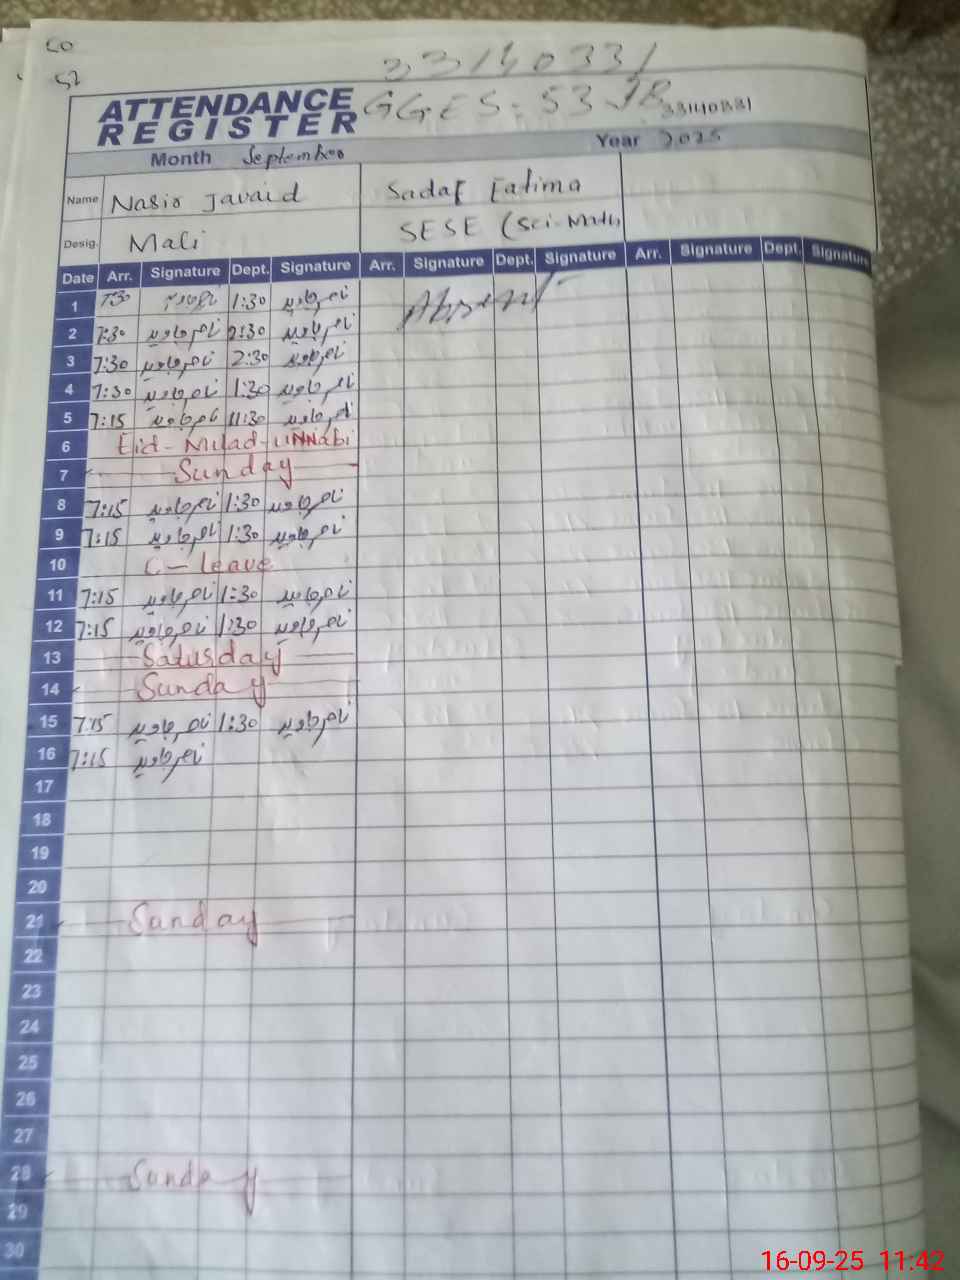 50
52
33140331
GGES. 53 JB 33140331
ATTENDANCE
REGISTER
Month September Year 2025
Name Nasir Javaid Sadaf Fatima
Desig. Mali SESE (Sci-Math)
Date Arr. Signature Dept. Signature Arr. Signature Dept. Signature Arr. Signature Dept. Signature
1 7:30 ناصر جاوید 1:30 ناصر جاوید Absent
2 7:30 ناصر جاوید 2:30 ناصر جاوید
3 7:30 ناصر جاوید 2:30 ناصر جاوید
4 7:30 ناصر جاوید 1:30 ناصر جاوید
5 7:15 ناصر جاوید 11:30 ناصر جاوید
6 Eid-Milad-UNNabi
7 Sunday
8 7:15 ناصر جاوید 1:30 ناصر جاوید
9 7:15 ناصر جاوید 1:30 ناصر جاوید
10 C-leave
11 7:15 ناصر جاوید 1:30 ناصر جاوید
12 7:15 ناصر جاوید 1:30 ناصر جاوید
13 Saturday
14 Sunday
15 7:15 ناصر جاوید 1:30 ناصر جاوید
16 7:15 ناصر جاوید
17
18
19
20
21 Sunday
22
23
24
25
26
27
28 Sunday
29
30
16-09-25 11:42